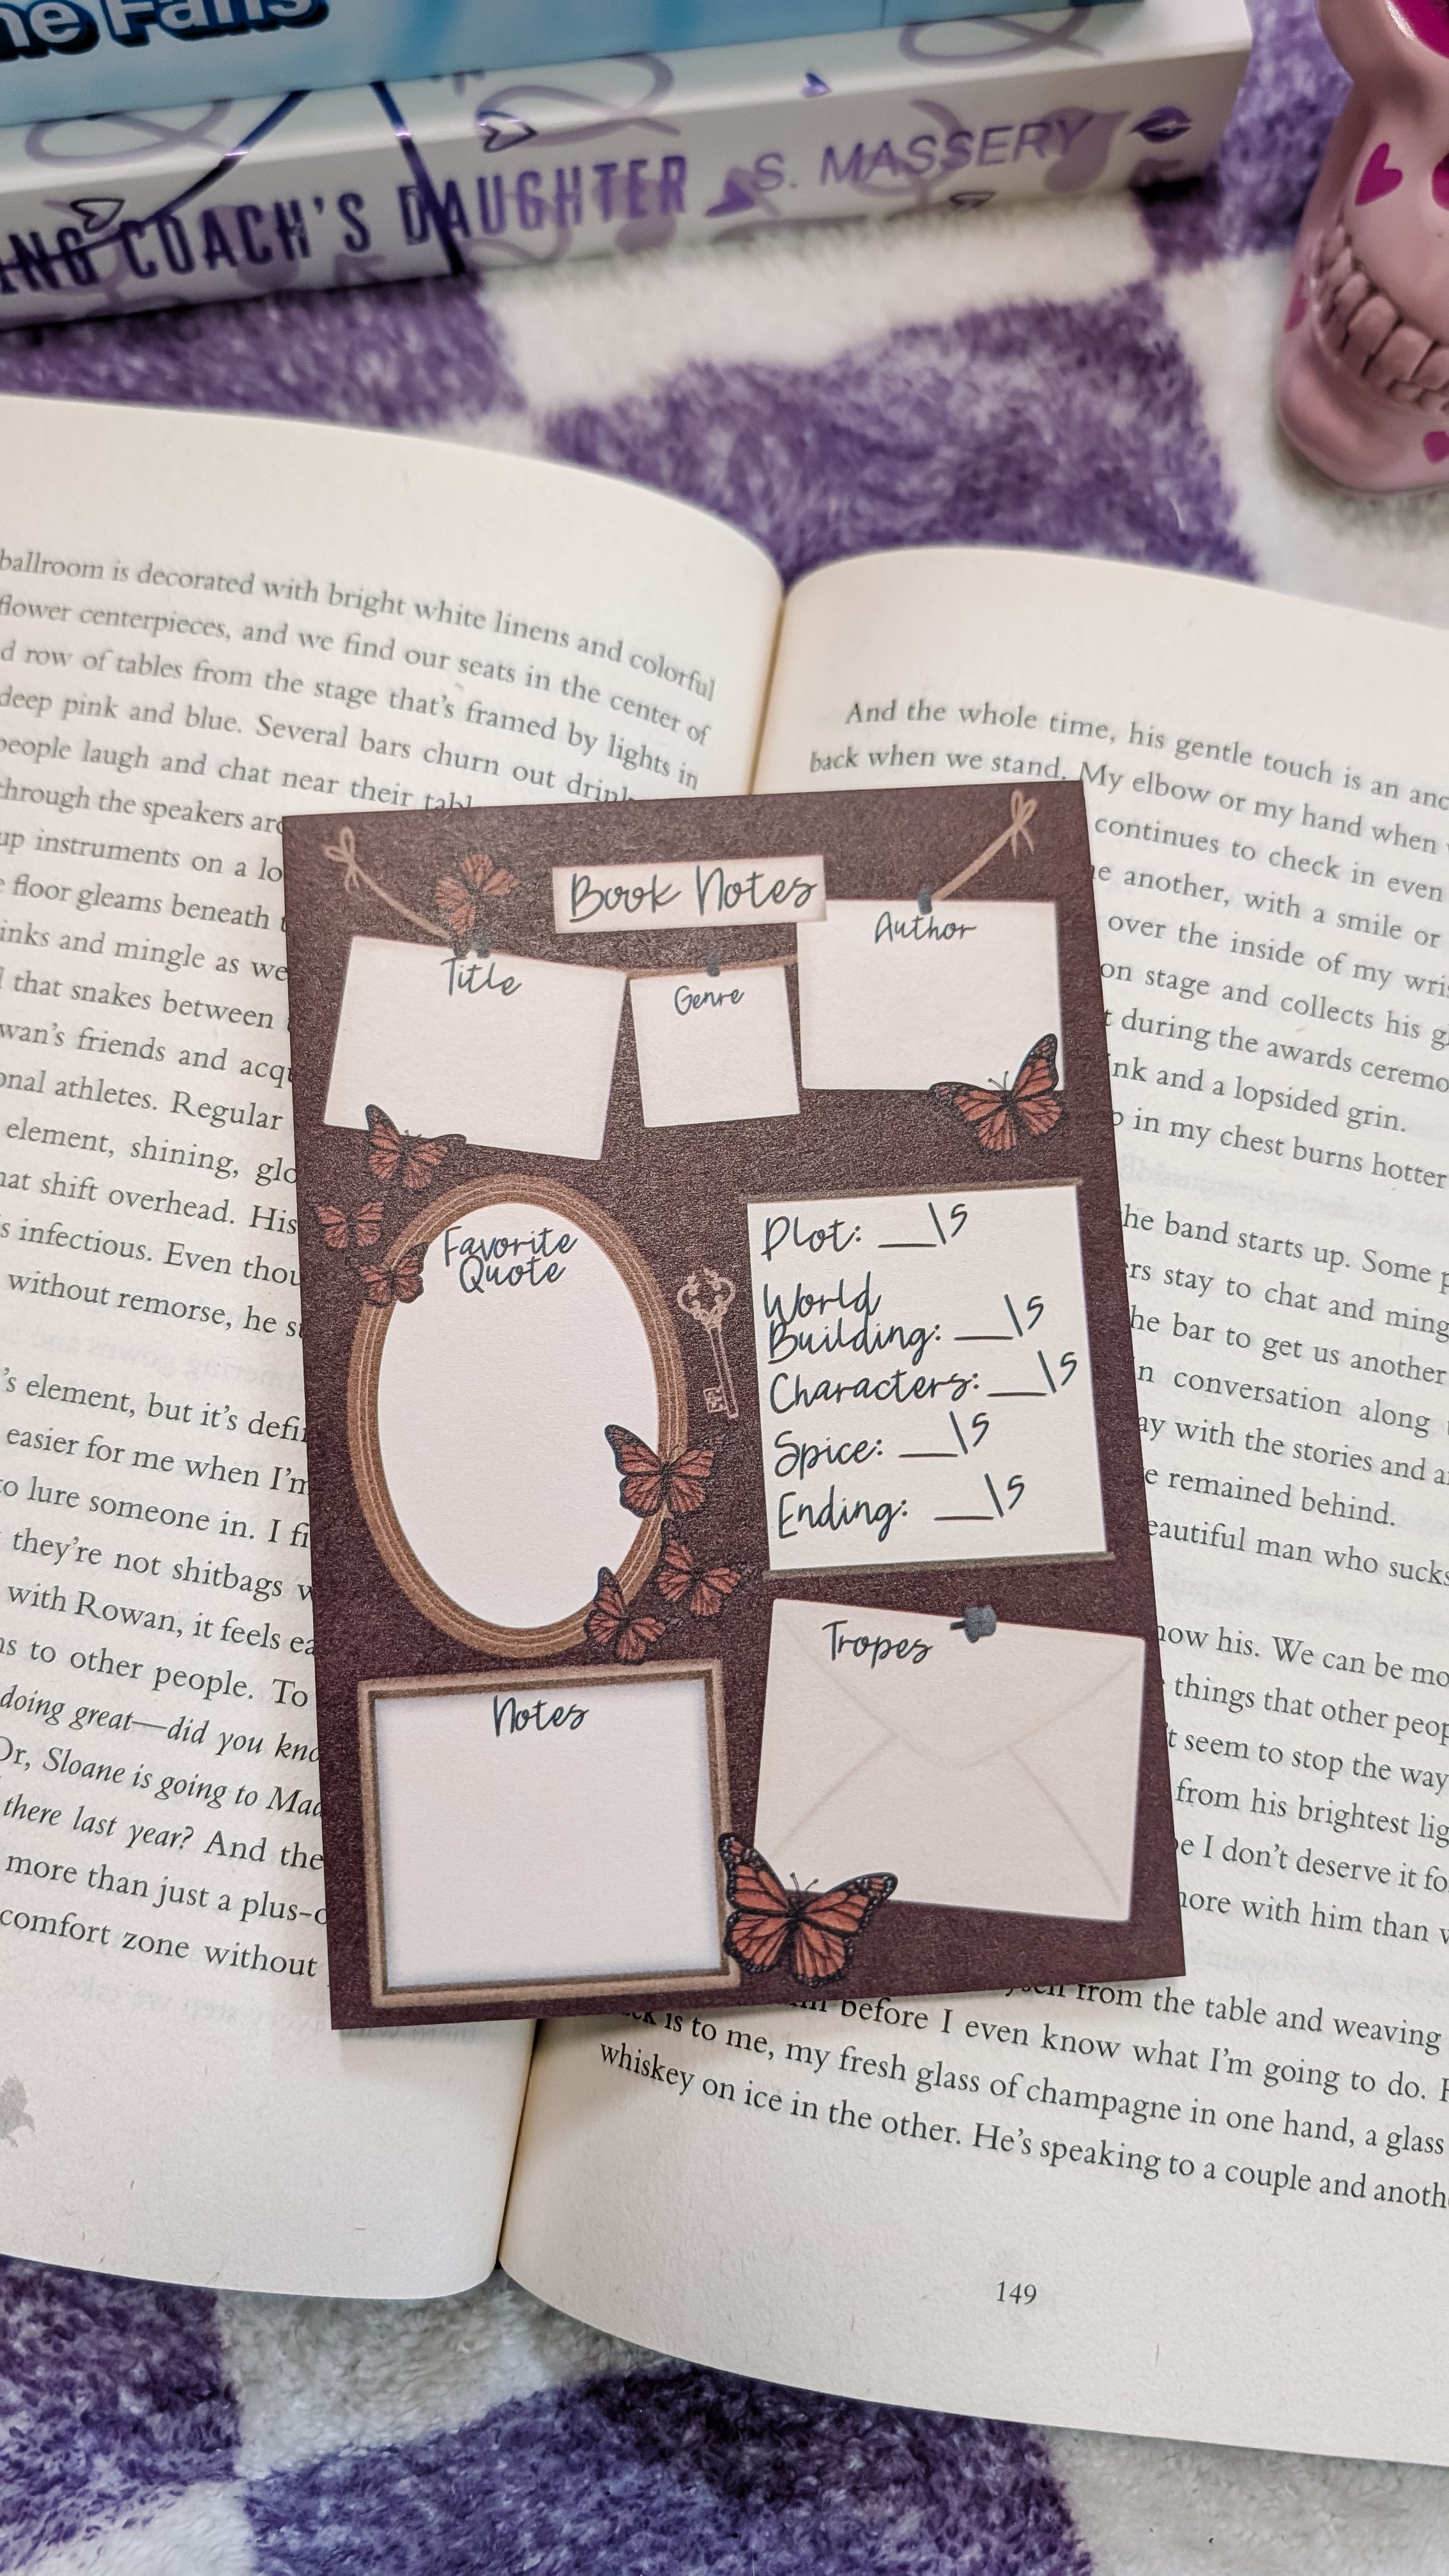 ne Fans
NG COACH'S DAUGHTER S. MASSERY
ballroom is decorated with bright white linens and colorful
flower centerpieces, and we find our seats in the center of
d row of tables from the stage that's framed by lights in
deep pink and blue. Several bars churn out drink
people laugh and chat near their tabl
through the speakers arc
up instruments on a lo
e floor gleams beneath t
inks and mingle as we
l that snakes between
wan's friends and acqu
onal athletes. Regular
element, shining, glo
hat shift overhead. His
s infectious. Even thou
without remorse, he st
's element, but it's defin
easier for me when I'm
to lure someone in. I fi
they're not shitbags w
with Rowan, it feels ea
ns to other people. To
doing great—did you kno
Or, Sloane is going to Mad
there last year? And the
more than just a plus-o
comfort zone without
And the whole time, his gentle touch is an anc
back when we stand. My elbow or my hand when
continues to check in even
ne another, with a smile or
over the inside of my wris
on stage and collects his g
t during the awards ceremo
ink and a lopsided grin.
p in my chest burns hotter
he band starts up. Some p
ers stay to chat and ming
he bar to get us another
n conversation along
ay with the stories and a
e remained behind.
eautiful man who sucks
now his. We can be mo
things that other peop
't seem to stop the way
from his brightest lig
be I don't deserve it fo
more with him than w
yself from the table and weaving
before I even know what I'm going to do. H
ck is to me, my fresh glass of champagne in one hand, a glass
whiskey on ice in the other. He's speaking to a couple and anoth
149
Book Notes
Title
Genre
Author
Favorite
Quote
Plot: __\5
World
Building: __\5
Characters: __\5
Spice: __\5
Ending: __\5
Notes
Tropes